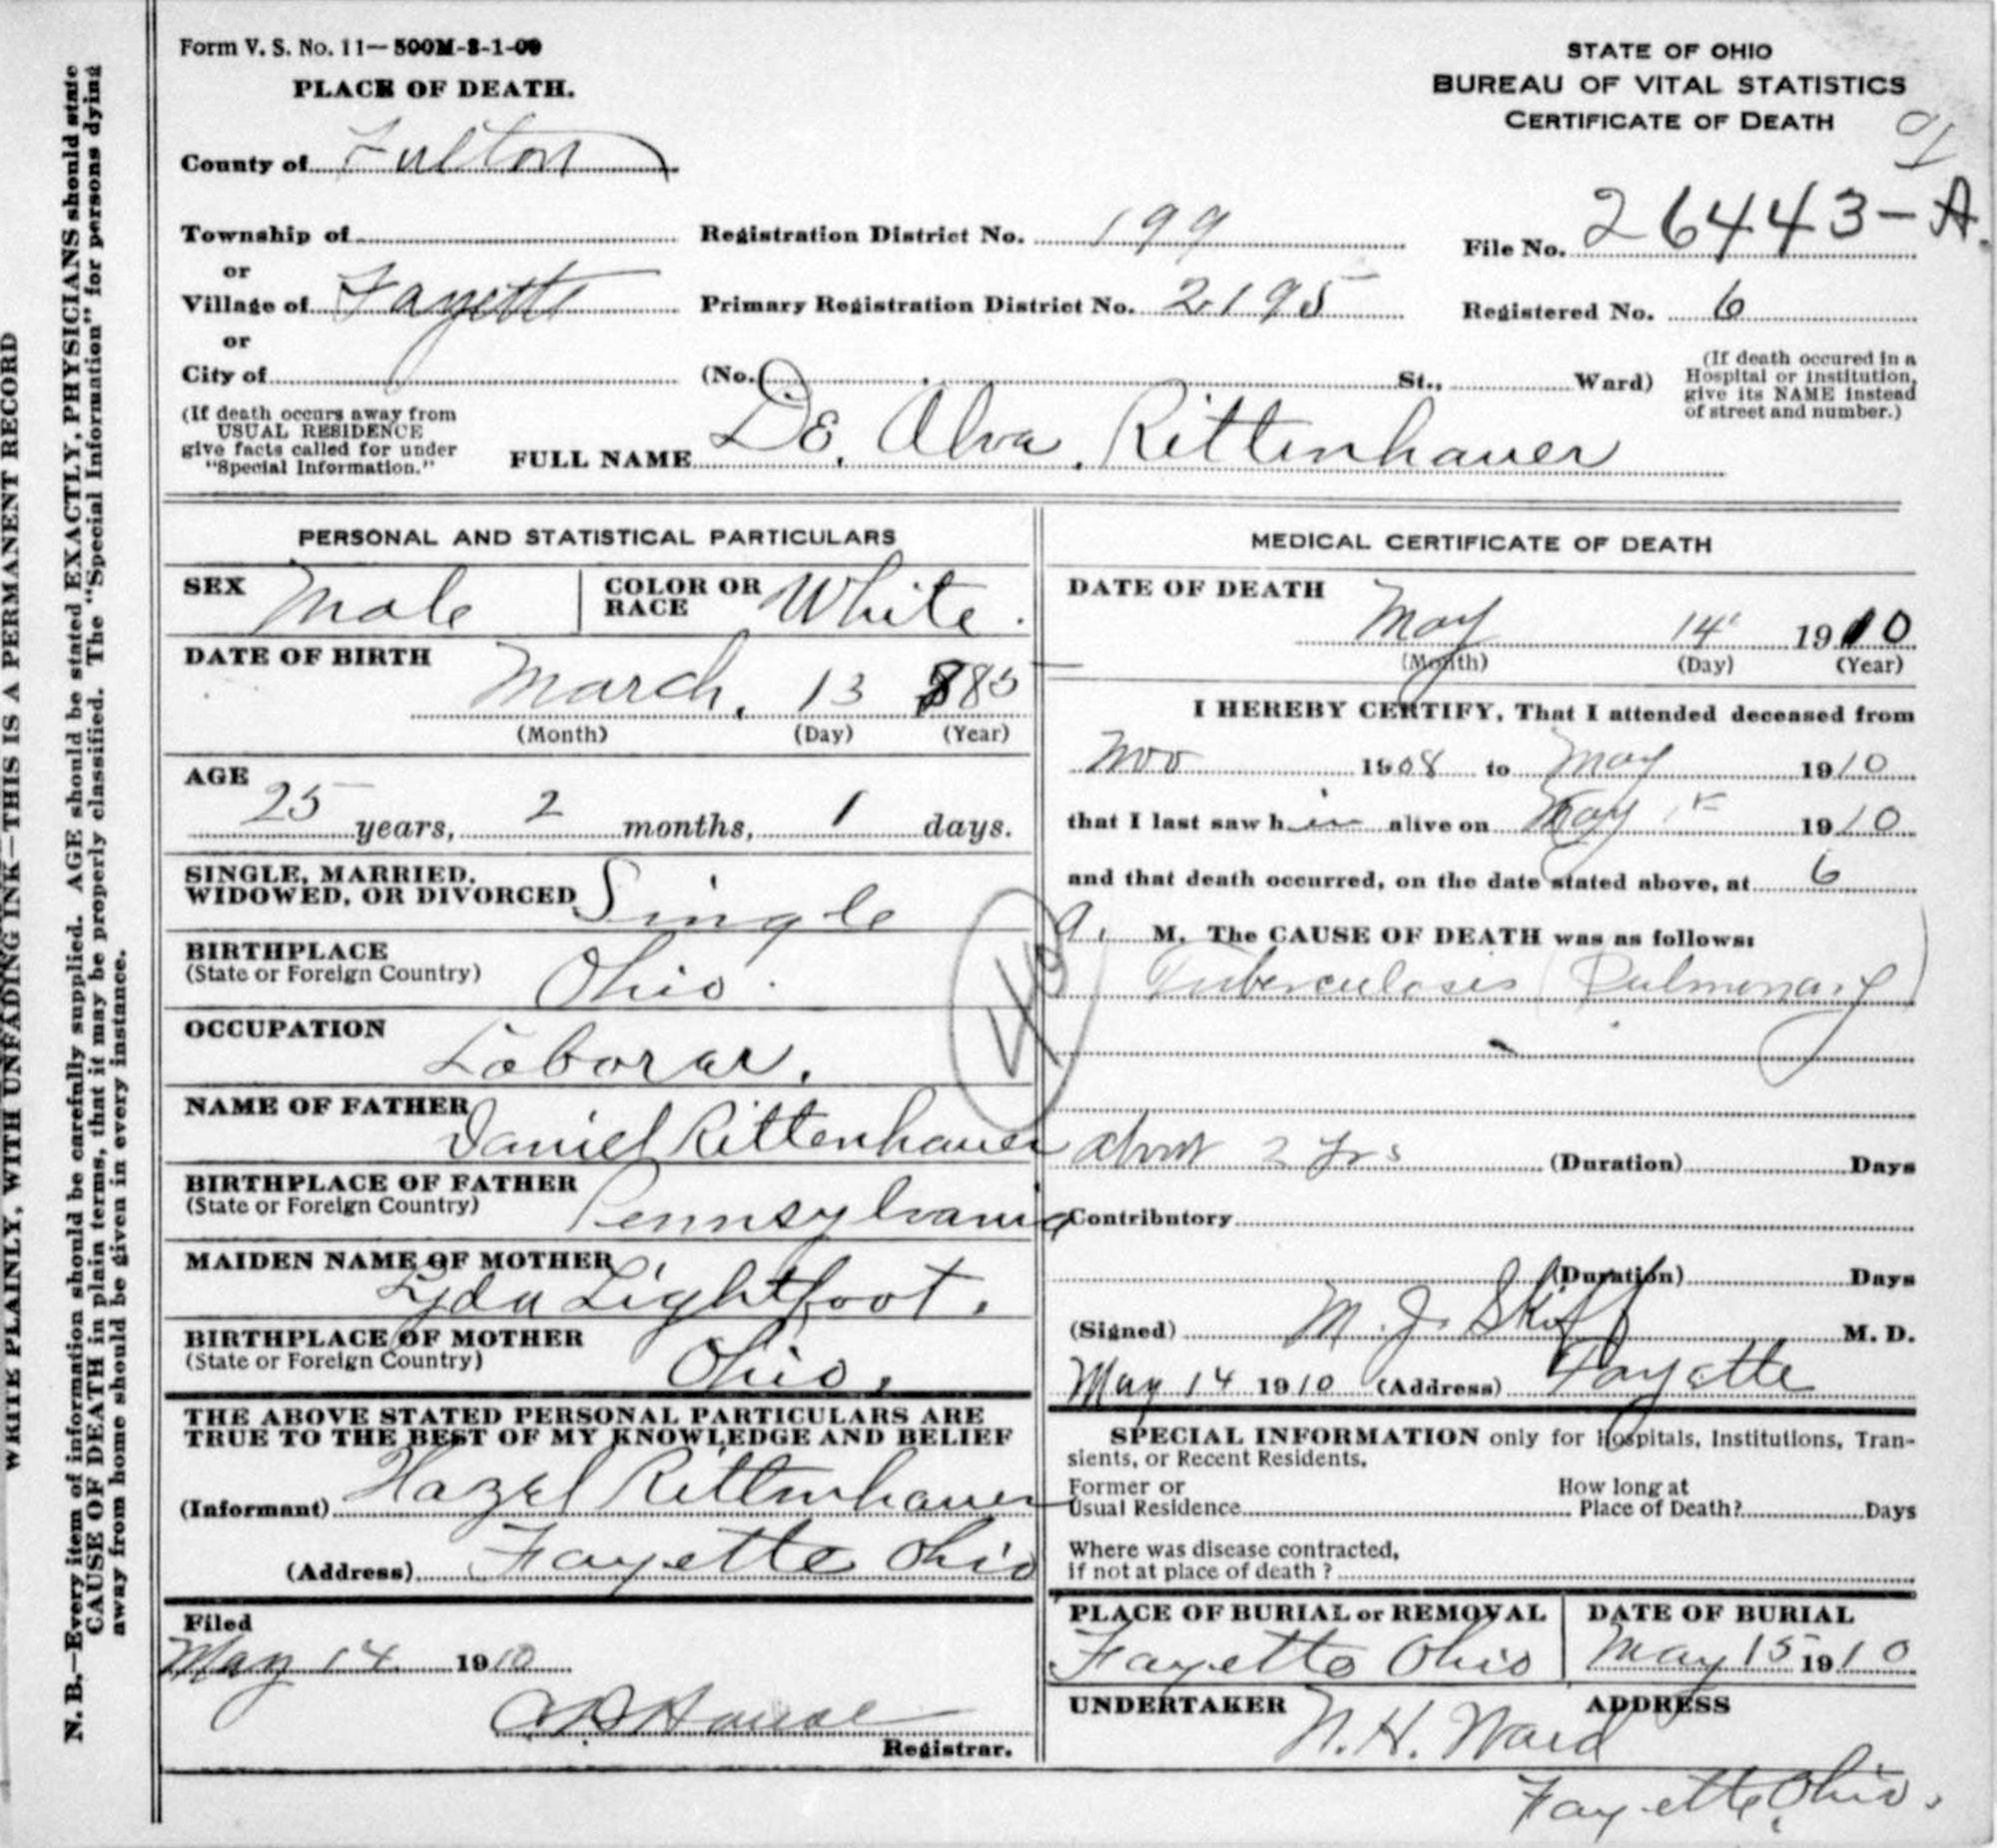 Form V. S. No. 11—500M-3-1-09
PLACE OF DEATH.
STATE OF OHIO
BUREAU OF VITAL STATISTICS
CERTIFICATE OF DEATH
County of Fulton
Township of
Registration District No. 199
File No. 26443-A.
or
Village of Fayette
Primary Registration District No. 2195
Registered No. 6
or
City of
(No. St., Ward)
(If death occured in a
Hospital or institution,
give its NAME instead
of street and number.)
(If death occurs away from
USUAL RESIDENCE
give facts called for under
"Special Information."
FULL NAME De. Alva. Rittenhauer
PERSONAL AND STATISTICAL PARTICULARS
SEX Male
COLOR OR
RACE White.
DATE OF BIRTH
March. 13 1885
(Month) (Day) (Year)
AGE
25 years, 2 months, 1 days.
SINGLE, MARRIED,
WIDOWED, OR DIVORCED Single
BIRTHPLACE
(State or Foreign Country) Ohio.
OCCUPATION
Laborar.
NAME OF FATHER
Daniel Rittenhauer
BIRTHPLACE OF FATHER
(State or Foreign Country) Pennsylvania
MAIDEN NAME OF MOTHER
Lyda Lightfoot.
BIRTHPLACE OF MOTHER
(State or Foreign Country) Ohio.
THE ABOVE STATED PERSONAL PARTICULARS ARE
TRUE TO THE BEST OF MY KNOWLEDGE AND BELIEF
(Informant) Hazel Rittenhauer
(Address) Fayette Ohio
Filed
May 14 1910
Registrar.
MEDICAL CERTIFICATE OF DEATH
DATE OF DEATH
May 14 1910
(Month) (Day) (Year)
I HEREBY CERTIFY, That I attended deceased from
Nov 1908 to May 1910
that I last saw him alive on May 1910
and that death occurred, on the date stated above, at 6
a. M. The CAUSE OF DEATH was as follows:
Tuberculosis (Pulmonary)
about 2 yrs (Duration) Days
Contributory
(Duration) Days
(Signed) M. J. Skiff M. D.
May 14 1910 (Address) Fayette
SPECIAL INFORMATION only for Hospitals, Institutions, Tran-
sients, or Recent Residents.
Former or
Usual Residence
How long at
Place of Death? Days
Where was disease contracted,
if not at place of death ?
PLACE OF BURIAL or REMOVAL
Fayette Ohio
DATE OF BURIAL
May 15 1910
UNDERTAKER
N. H. Ward
ADDRESS
Fayette, Ohio.
WRITE PLAINLY, WITH UNFADING INK—THIS IS A PERMANENT RECORD
N. B.—Every item of information should be carefully supplied. AGE should be stated EXACTLY, PHYSICIANS should state
CAUSE OF DEATH in plain terms, that it may be properly classified. The "Special Information" for persons dying
away from home should be given in every instance.